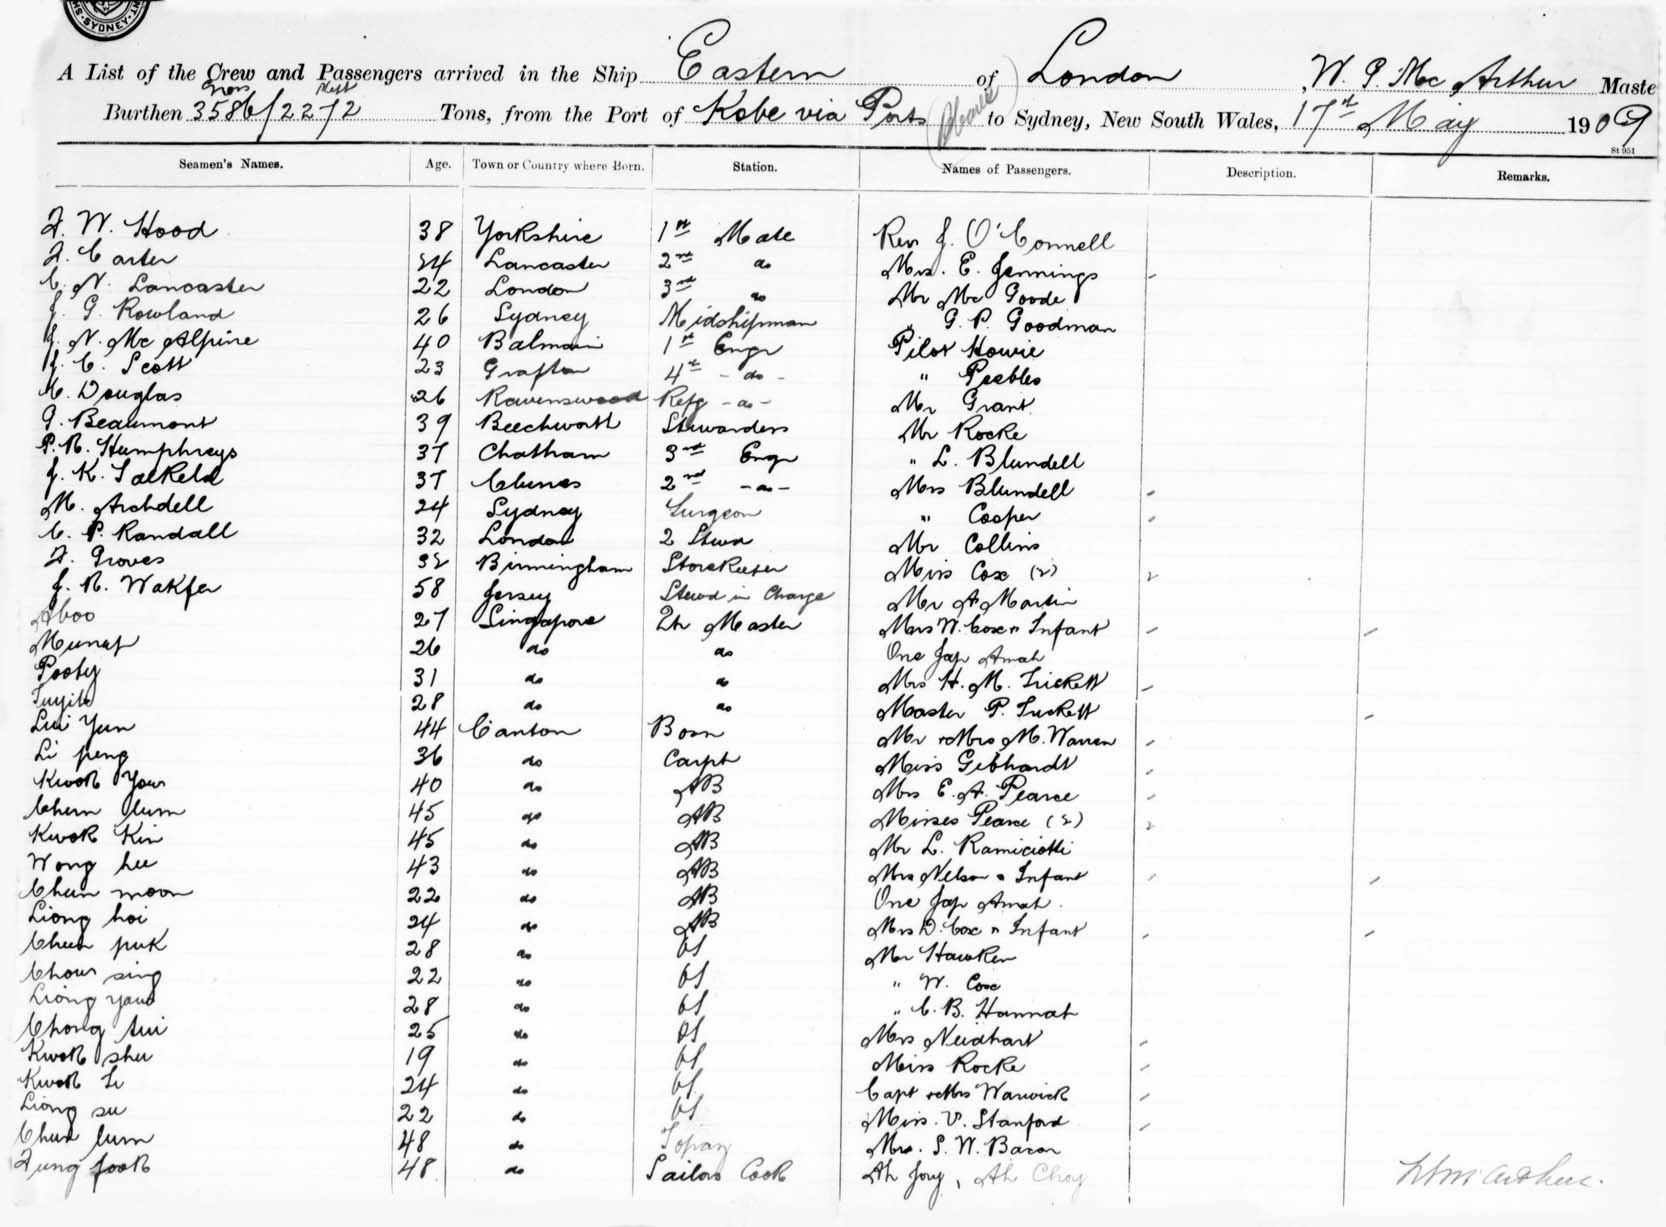 SYDNEY
A List of the Crew and Passengers arrived in the Ship Eastern of London, W. P. McArthur Maste
Gross Nett
Burthen 3586/2272 Tons, from the Port of Kobe via Ports to Sydney, New South Wales, 17th May 1909
St 951
Seamen's Names. Age. Town or Country where Born. Station. Names of Passengers. Description. Remarks.
F. W. Hood 38 Yorkshire 1st Mate Rev J. O'Connell
F. Carter 24 Lancaster 2nd do Mrs. E. Jennings
C. N. Lancaster 22 London 3rd do Mr Mc Goode
J. G. Rowland 26 Sydney Midshipman " G. P. Goodman
J. N. McAlpine 40 Balmain 1st Engr Pilot Howie
J. C. Scott 23 Grafton 4th - do - " Peebles
C. Douglas 26 Ravenswood Refg - do - Mr Grant
G. Beaumont 39 Beechworth Stewardess Mr Rocke
P. R. Humphreys 37 Chatham 3rd Engr " L. Blundell
J. K. Salkeld 37 Clunes 2nd - do - Mrs Blundell
M. Archdell 24 Sydney Surgeon " Cooper
C. P. Randall 32 London 2 Stewd Mr Collins
F. Groves 32 Birmingham Storekeeper Miss Cox (2) 2
J. R. Wakfer 58 Jersey Stewd in Charge Mr A Martin
Aboo 27 Singapore Qtr Master Mrs W. Cox & Infant
Munap 26 do do One Jap Amah
Pooty 31 do do Mrs H. M. Trickett
28 do do Master P. Tuckett
Lui Yun 44 Canton Bosn Mr & Mrs M. Warren
Li peng 36 do Carpt Miss Gebhardt
Kwok Yow 40 do AB Mrs E. A. Pearce
Chun lum 45 do AB Misses Pearce (2) 2
Kwok Kin 45 do AB Mr L. Ramiciotti
Wong lee 43 do AB Mrs Nelson & Infant
Chun moon 22 do AB One Jap Amah.
Liong hoi 24 do AB Mrs D. Cox & Infant
Chun puk 28 do OS Mr Hawken
Chow sing 22 do OS " W. Cox
Liong yow 28 do OS " C. B. Hannah
Chong sui 25 do OS Mrs Neidhart
Kwok shu 19 do OS Miss Rocke
Kwok Si 24 do OS Capt & Mrs Warwick
Liong su 22 do OS Miss. V. Stanford
Chun lum 48 do Topaz Mrs. S. W. Bacon
Fung fook 48 do Sailors Cook Ah Joy, Ah Choy
W P McArthur.